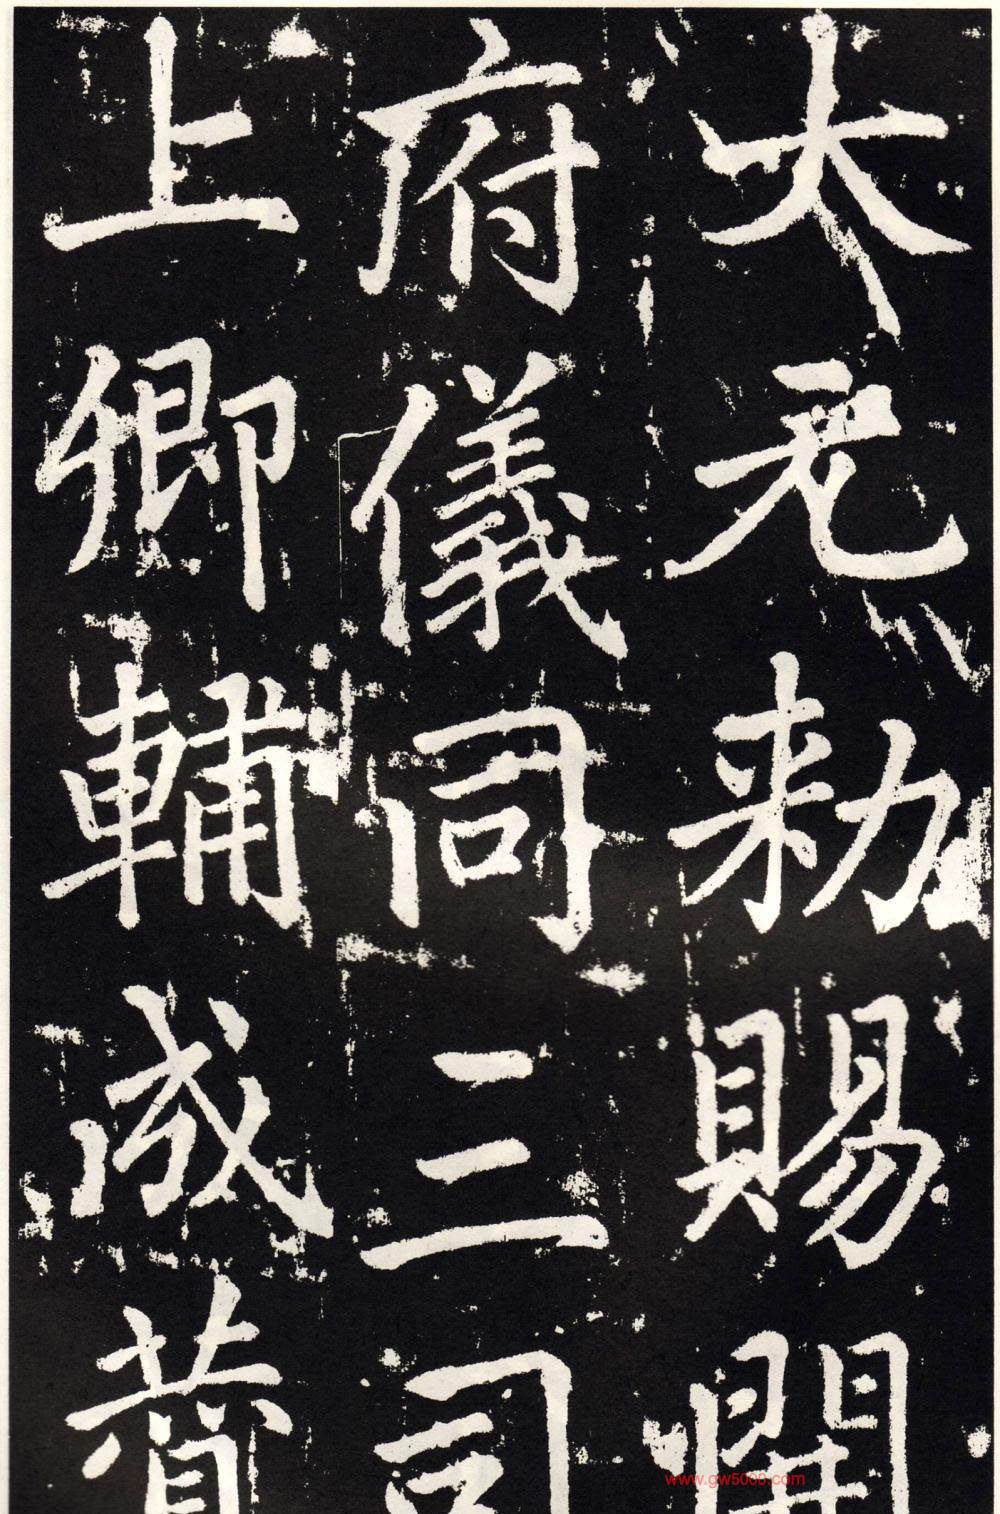 大元勑賜開
府儀同三司
上卿輔成贊
www.gw5000.com